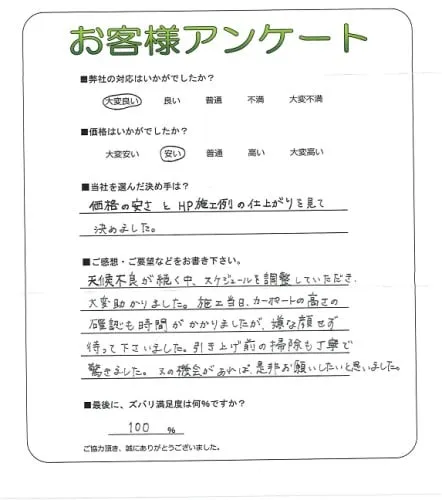 お客様アンケート
■弊社の対応はいかがでしたか？
大変良い 良い 普通 不満 大変不満
■価格はいかがでしたか？
大変安い 安い 普通 高い 大変高い
■当社を選んだ決め手は？
価格の安さとHP施工例の仕上がりを見て
決めました。
■ご感想・ご要望などをお書き下さい。
天候不良が続く中、スケジュールを調整していただき、
大変助かりました。施工当日、カーポートの高さの
確認も時間がかかりましたが、嫌な顔せず
待って下さいました。引き上げ前の掃除も丁寧で
驚きました。又の機会があれば、是非お願いしたいと思いました。
■最後に、ズバリ満足度は何%ですか？
100 %
ご協力頂き、誠にありがとうございました。